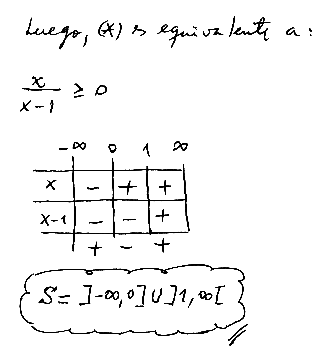 Luego, (*) es equivalente a:
x
x-1 ≥ 0
-∞ 0 1 ∞
x - + +
x-1 - - +
+ - +
S= ]-∞,0] U ]1,∞[